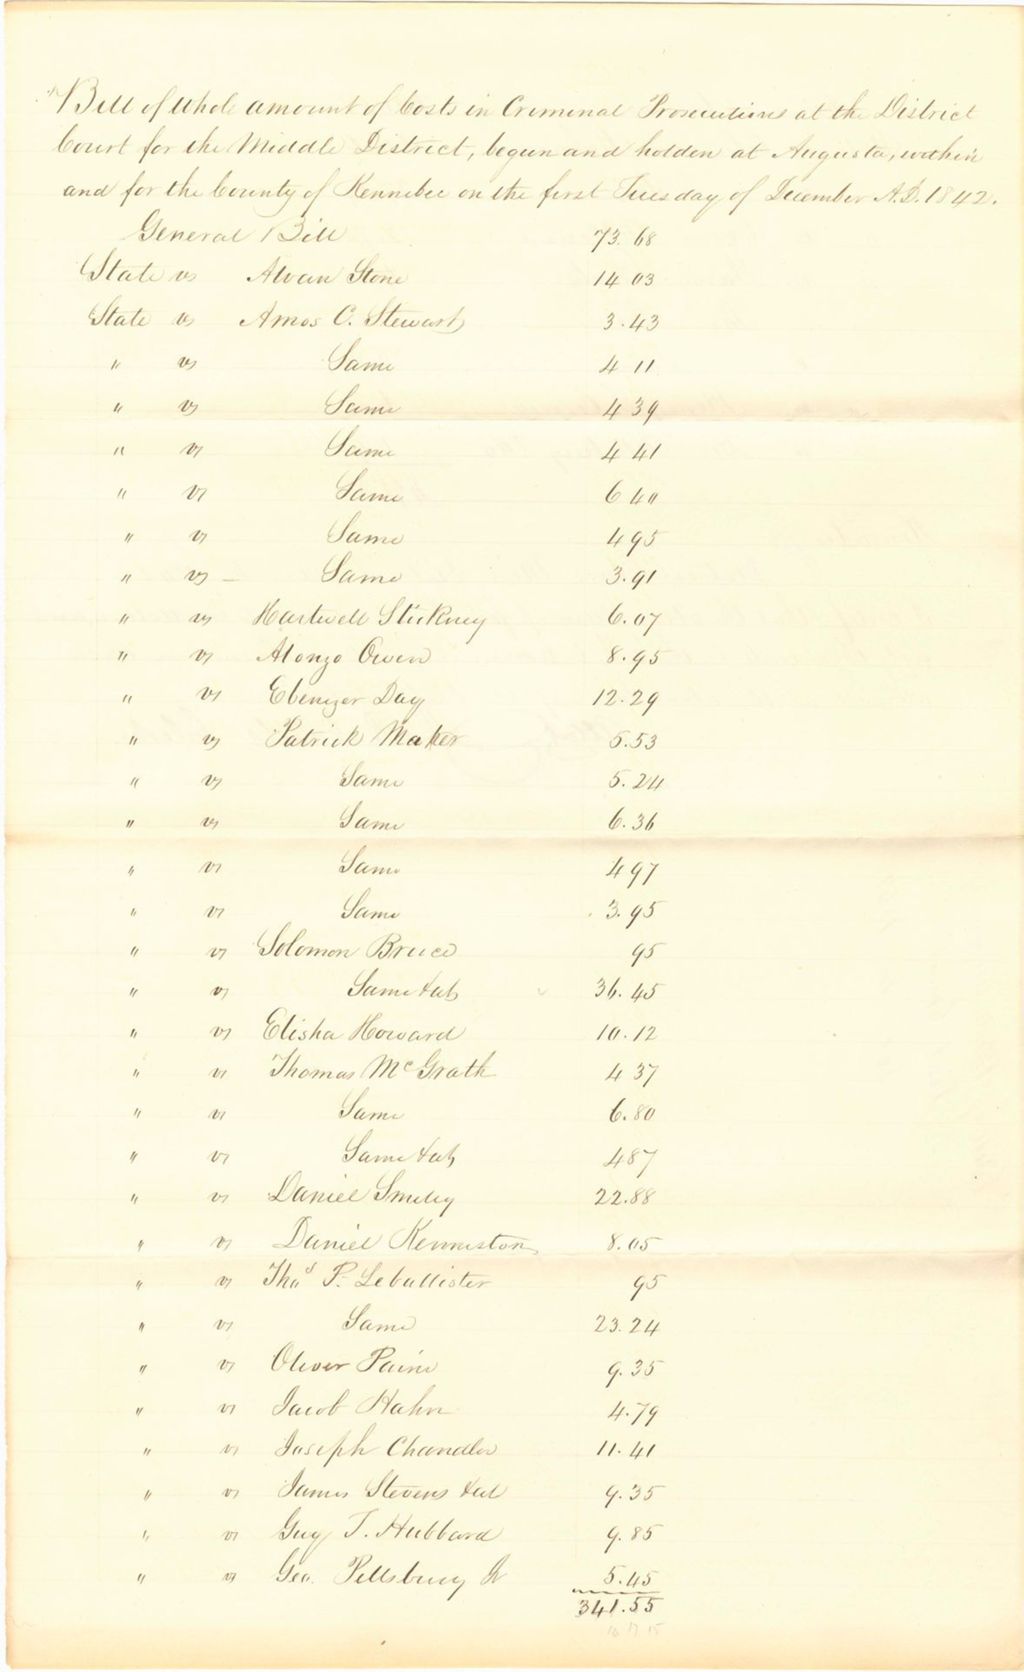 Bill of whole amount of Costs in Criminal Prosecutions at the District
Court for the Middle District, begun and holden at Augusta, within
and for the County of Kennebec on the first Tuesday of December A.D. 1842.
General Bill 73.68
State vs Alvan Stone 14 03
State vs Amos C. Stewart 3.43
" vs Same 4 11
" vs Same 4 39
" vs Same 4 41
" vs Same 6 40
" vs Same 4 95
" vs – Same 3.91
" vs Hartwell Stickney 6.07
" vs Alonzo Owen 8.95
" vs Ebenezer Day 12.29
" vs Patrick Maher 5.53
" vs Same 5.24
" vs Same 6.36
" vs Same 4 97
" vs Same 3.95
" vs Solomon Bruce 95
" vs Same & al 36.45
" vs Elisha Howard 10.12
" vs Thomas McGrath 4 37
" vs Same 6.80
" vs Same & al 4 87
" vs Daniel Smiley 22.88
" vs Daniel Kenniston 8.05
" vs Thos P. Leballister 95
" vs Same 23.24
" vs Oliver Paine 9.35
" vs Jacob Hahn 4.79
" vs Joseph Chandler 11.41
" vs James Stevens & al 9.35
" vs Guy T. Hubbard 9.85
" vs Geo. Pillsbury Jr 5.45
341.55